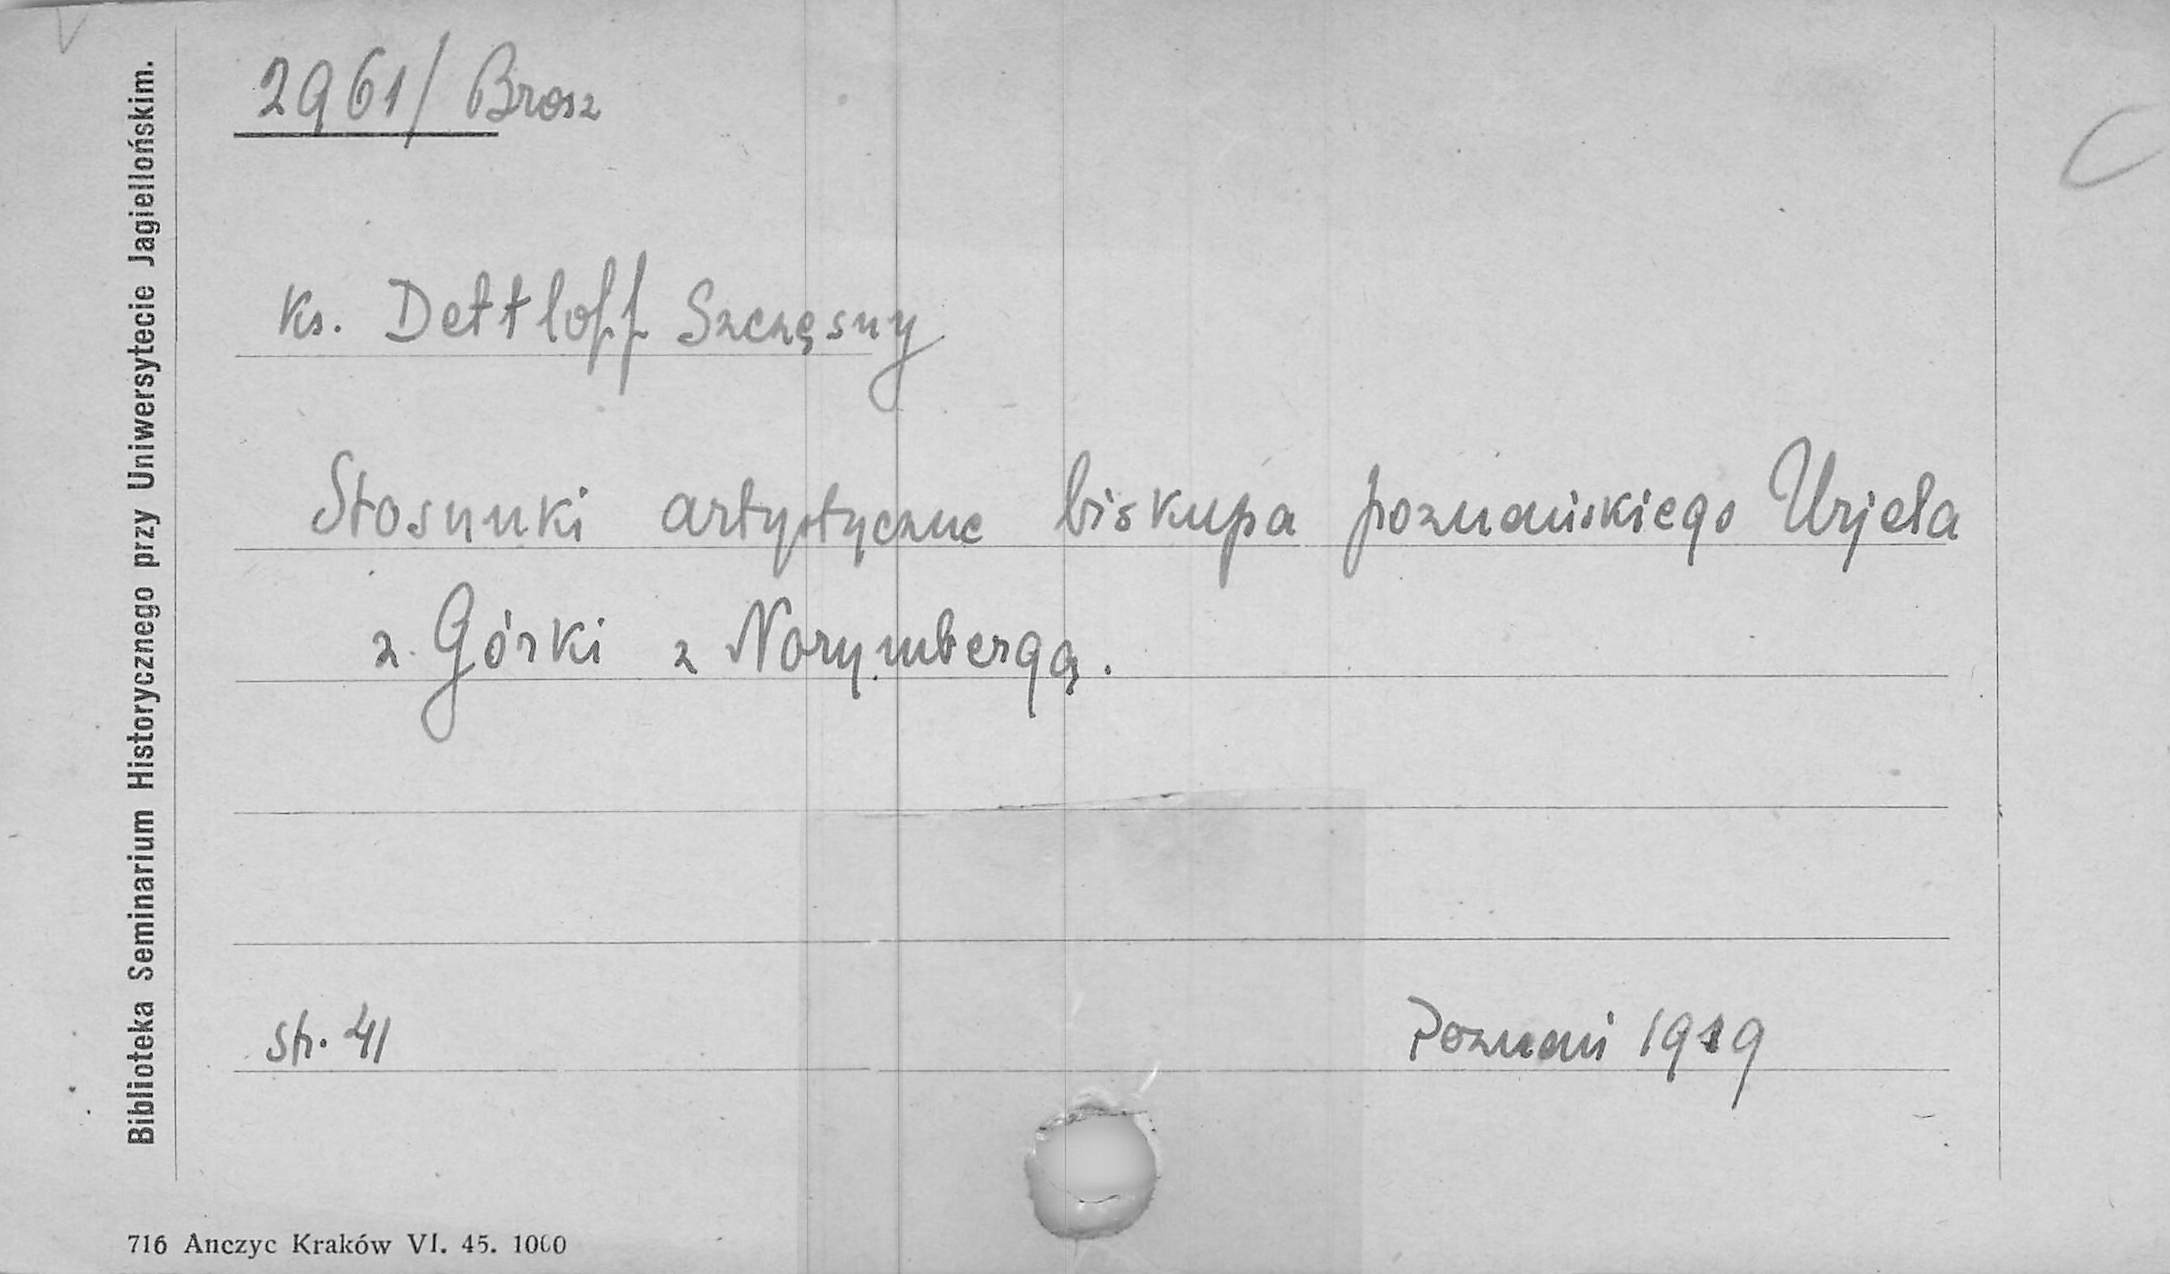 2961/ Brosz
Ks. Dettloff Szczęsny
Stosunki artystyczne biskupa poznańskiego Urjela
z Górki z Norymbergą.
str. 41
Poznań 1919
Biblioteka Seminarium Historycznego przy Uniwersytecie Jagiellońskim.
716 Anczyc Kraków VI. 45. 1000
C